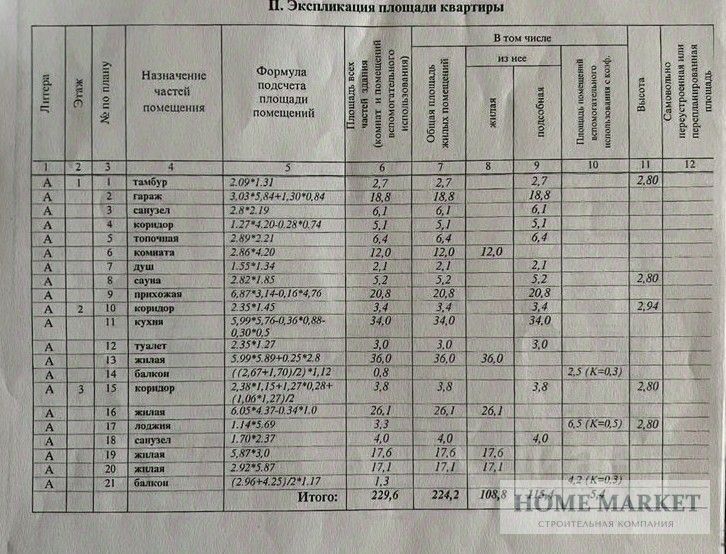 II. Экспликация площади квартиры
Литера
Этаж
№ по плану
Назначение частей помещения
Формула подсчета площади помещений
Площадь всех частей здания (комнат и помещений вспомогательного использования)
В том числе
Общая площадь жилых помещений
из нее
жилая
подсобная
Площадь помещений вспомогательного использования с коэф.
Высота
Самовольно переустроенная или перепланированная площадь
1 2 3 4 5 6 7 8 9 10 11 12
А 1 1 тамбур 2.09*1.31 2,7 2,7 2,7 2,80
А 2 гараж 3.03*5,84+1,30*0,84 18,8 18,8 18,8
А 3 санузел 2.8*2.19 6,1 6,1 6,1
А 4 коридор 1.27*4.20-0.28*0.74 5,1 5,1 5,1
А 5 топочная 2.89*2.21 6,4 6,4 6,4
А 6 комната 2.86*4.20 12,0 12,0 12,0
А 7 душ 1.55*1.34 2,1 2,1 2,1
А 8 сауна 2.82*1.85 5,2 5,2 5,2 2,80
А 9 прихожая 6,87*3,14-0,16*4,76 20,8 20,8 20,8
А 2 10 коридор 2.35*1.45 3,4 3,4 3,4 2,94
А 11 кухня 5,99*5,76-0,36*0,88- 34,0 34,0 34,0
0,30*0,5
А 12 туалет 2.35*1.27 3,0 3,0 3,0
А 13 жилая 5.99*5.89+0.25*2.8 36,0 36,0 36,0
А 14 балкон ((2,67+1,70)/2)*1,12 0,8 2,5 (К=0,3)
А 3 15 коридор 2,38*1,15+1,27*0,28+ 3,8 3,8 3,8 2,80
(1,06*1,27)/2
А 16 жилая 6.05*4.37-0.34*1.0 26,1 26,1 26,1
А 17 лоджия 1.14*5.69 3,3 6,5 (К=0,5) 2,80
А 18 санузел 1.70*2.37 4,0 4,0 4,0
А 19 жилая 5,87*3,0 17,6 17,6 17,6
А 20 жилая 2.92*5.87 17,1 17,1 17,1
А 21 балкон (2.96+4.25)/2*1.17 1,3 4,2 (К=0,3)
Итого: 229,6 224,2 108,8 115,4 5,4
HOME MARKET
СТРОИТЕЛЬНАЯ КОМПАНИЯ